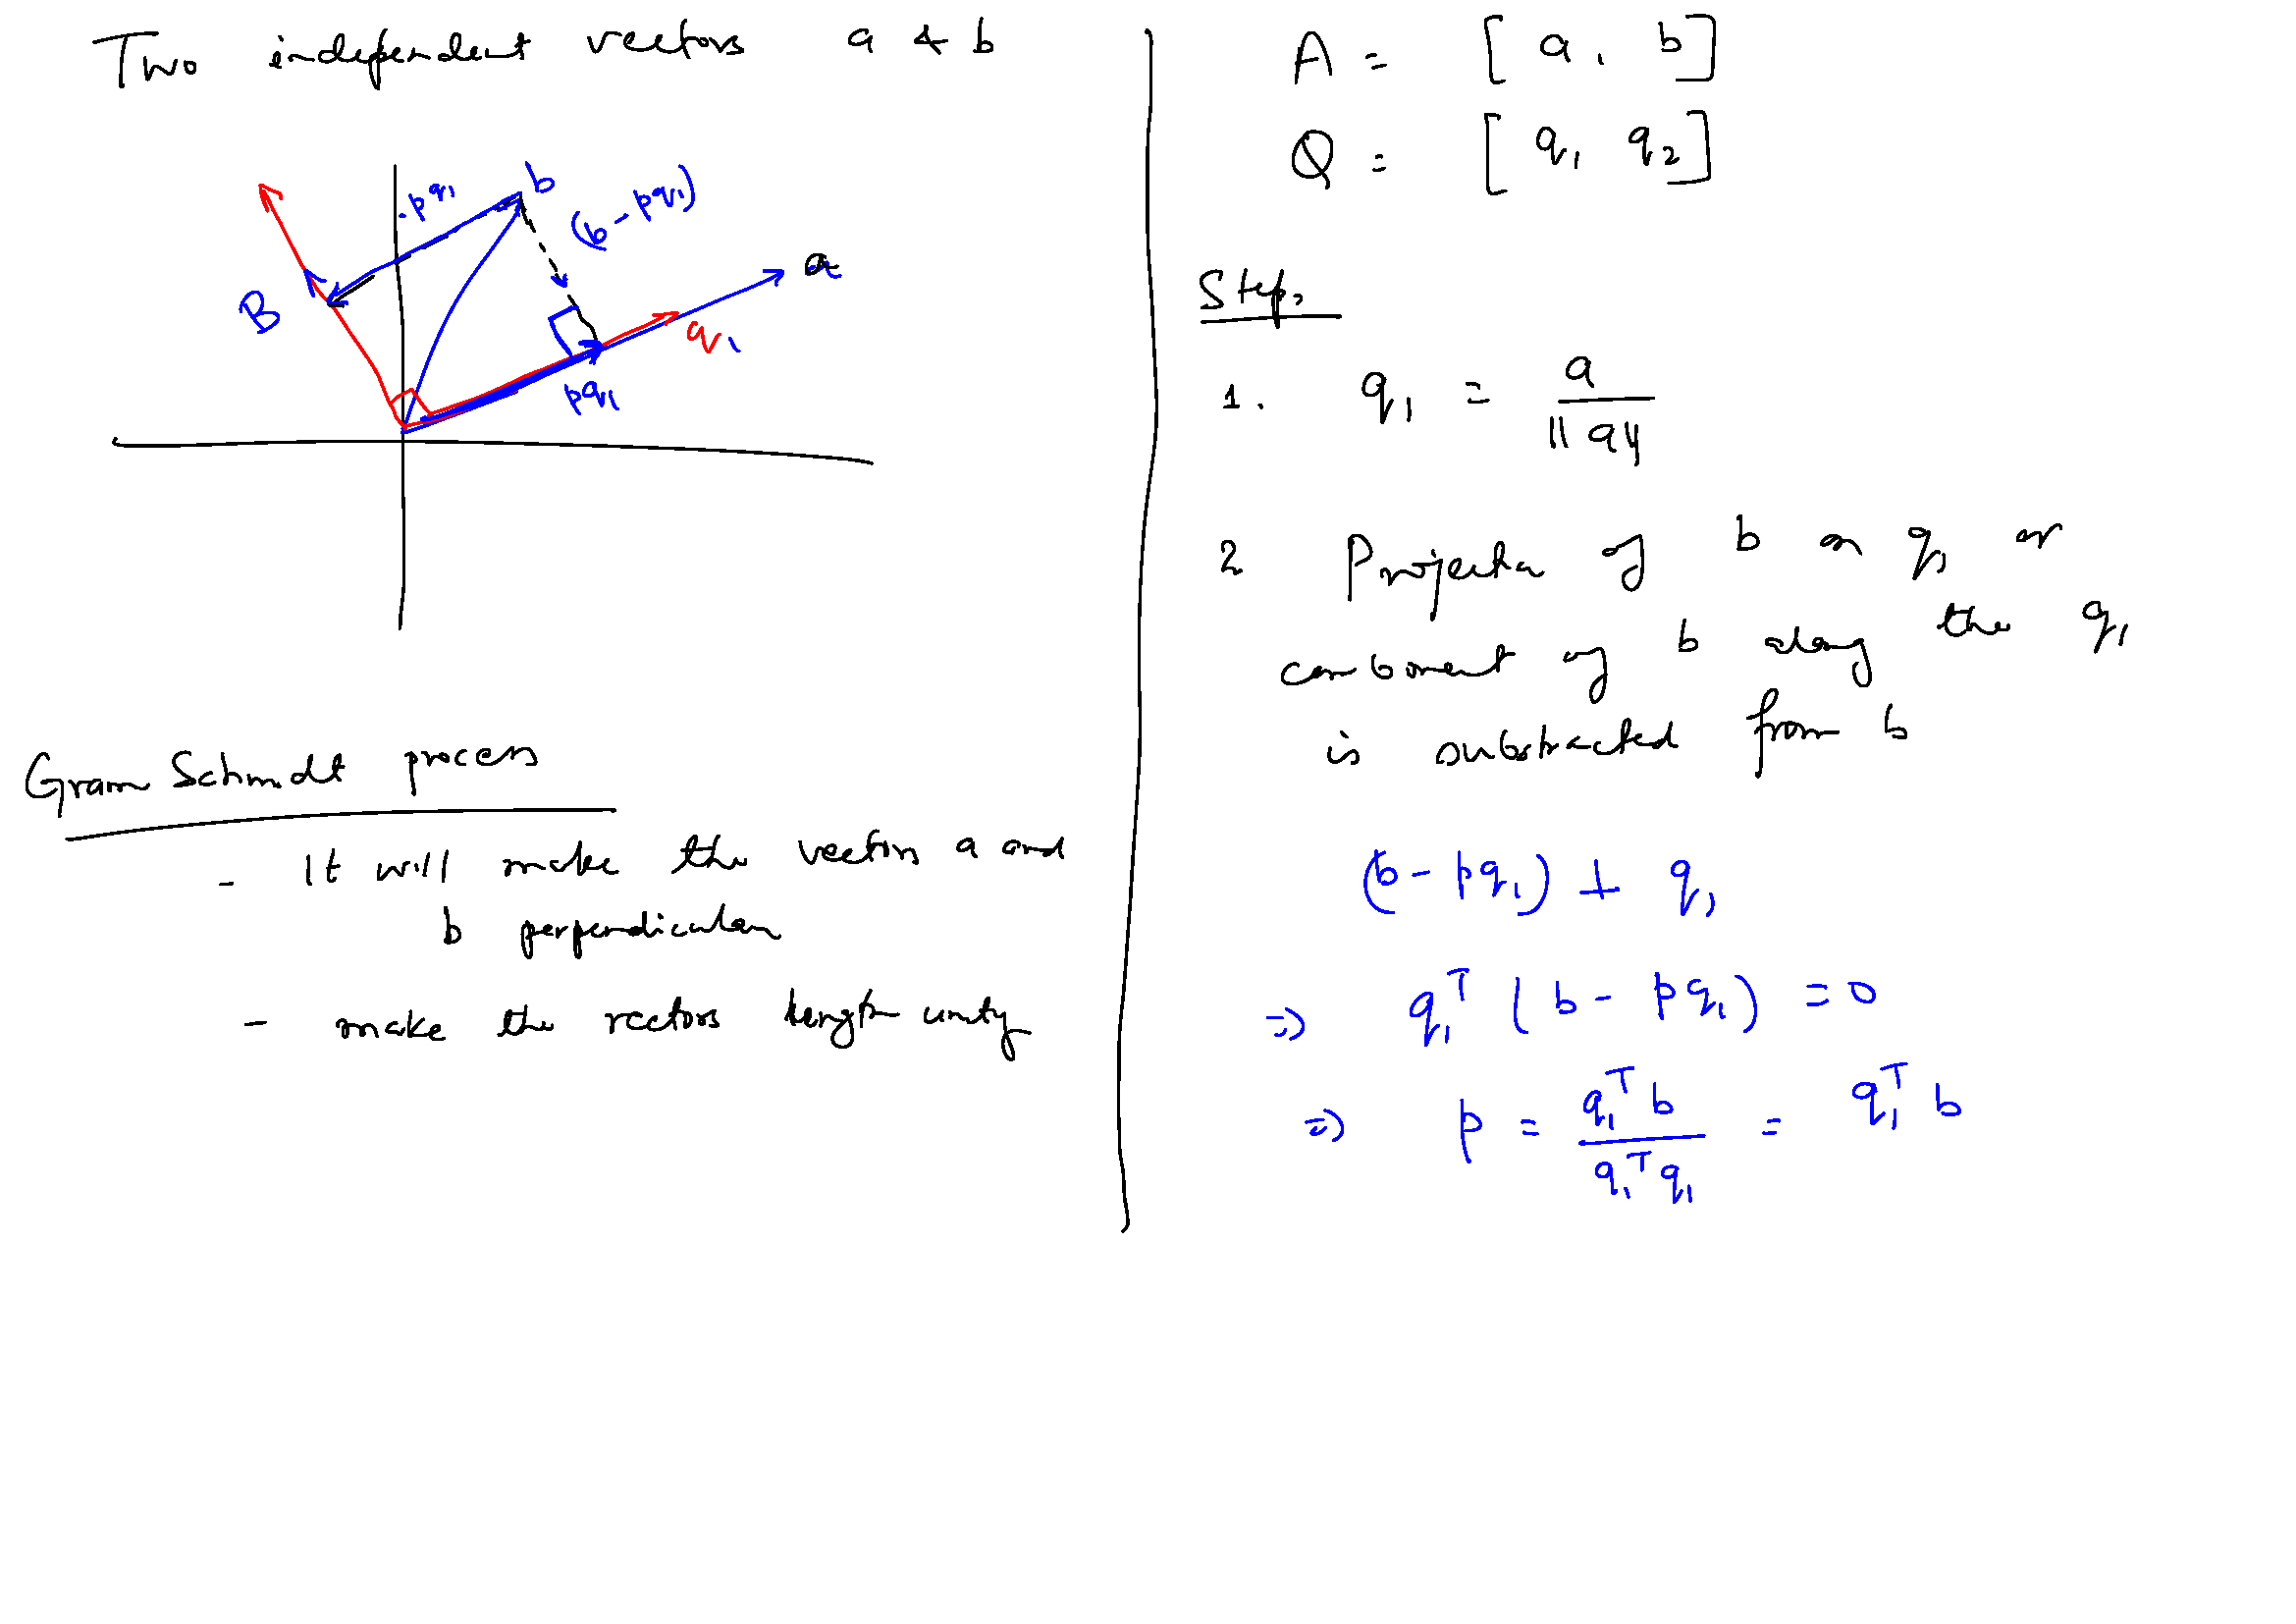 Two independent vectors a & b
-pq₁
b
(b - pq₁)
a
B
q₁
pq₁
Gram Schmidt process
- It will make the vectors a and
b perpendicular
- make the vectors length unity
A = [a, b]
Q = [q₁ q₂]
Steps
1. q₁ = a / ||a||
2 Projection of b on q₁ or
component of b along the q₁
is substracted from b
(b - pq₁) ⊥ q₁
⇒ q₁ᵀ (b - pq₁) = 0
⇒ p = q₁ᵀ b / q₁ᵀ q₁ = q₁ᵀ b